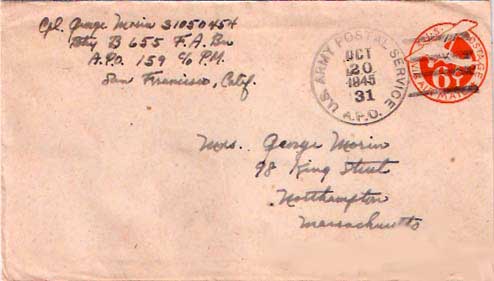 Cpl. George Morin 31050454
Bty B 655 F.A. Bn
A.P.O. 159 c/o P.M.
San Francisco, Calif.
U.S. ARMY POSTAL SERVICE
OCT
20
1945
31
A.P.O.
U.S. POSTAGE
6¢
VIA AIR MAIL
Mrs. George Morin
98 King Street
Northampton
Massachusetts